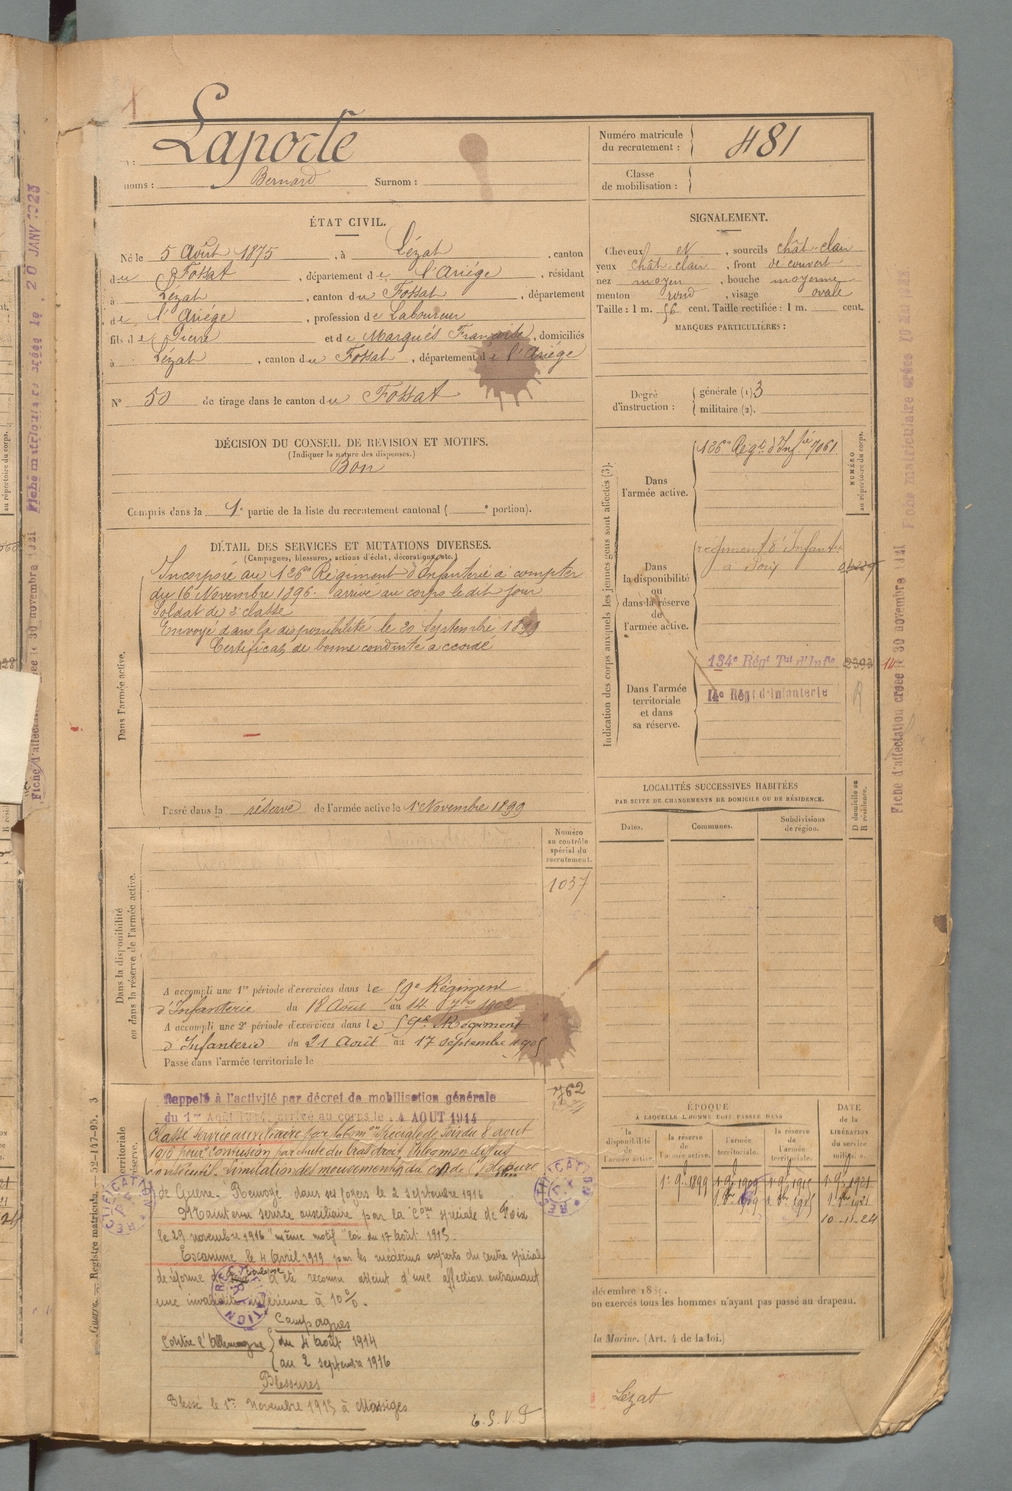 Laporte
noms : Bernard Surnom :
Numéro matricule
du recrutement : 481
Classe
de mobilisation :
ÉTAT CIVIL.
Né le 5 Août 1875, à Lézat, canton
du Fossat, département de l'Ariége, résidant
à Lézat, canton du Fossat, département
de l'Ariége, profession de Laboureur
fils de Pierre et de Marquès Françoise, domiciliés
à Lézat, canton du Fossat, département de l'Ariége
N° 50 de tirage dans le canton du Fossat
DÉCISION DU CONSEIL DE REVISION ET MOTIFS.
(Indiquer la nature des dispenses.)
Bon
Compris dans la 1e partie de la liste du recrutement cantonal ( e portion).
SIGNALEMENT.
Cheveux et, sourcils chât-clair
yeux chât-clair, front découvert
nez moyen, bouche moyenne
menton rond, visage ovale
Taille : 1 m. 56 cent. Taille rectifiée : 1 m. cent.
MARQUES PARTICULIÈRES :
Degré
d'instruction :
générale (1) 3
militaire (2).
DÉTAIL DES SERVICES ET MUTATIONS DIVERSES.
(Campagnes, blessures, actions d'éclat, décorations, etc.)
Dans l'armée active.
Incorporé au 126e Régiment d'Infanterie à compter
du 16 Novembre 1896. arrivé au corps le dit jour
Soldat de 2e classe
Envoyé dans la disponibilité le 20 Septembre 1899
Certificat de bonne conduite accordé
Passé dans la réserve de l'armée active le 1er Novembre 1899
Indication des corps auxquels les jeunes gens sont affectés (3).
Dans
l'armée active.
126e Régt d'Infie 7061
NUMÉRO
au répertoire du corps.
Dans
la disponibilité
ou
dans la réserve
de
l'armée active.
régiment d'Infanterie
Dans l'armée
territoriale
et dans
sa réserve.
134e Régt Tal d'Infie
14e Régt d'Infanterie
LOCALITÉS SUCCESSIVES HABITÉES
PAR SUITE DE CHANGEMENTS DE DOMICILE OU DE RÉSIDENCE.
Dates.
Communes.
Subdivisions
de région.
D domicile ou
R résidence.
Dans la disponibilité
ou dans la réserve de l'armée active.
Numéro
au contrôle
spécial du
recrutement.
1037
A accompli une 1re période d'exercices dans le 59e Régiment
d'Infanterie du 18 Août au 14 7bre 1902
A accompli une 2e période d'exercices dans le 59e Régiment
d'Infanterie du 21 Août au 17 septembre 1905
Passé dans l'armée territoriale le
762
Rappelé à l'activité par décret de mobilisation générale
du 1er Août 1914, arrivé au corps le 4 AOUT 1914
Classé service auxiliaire par la Com on spéciale de Foix du 8 août
de Guerre. Renvoyé dans ses foyers le 2 septembre 1916
Maintenu service auxiliaire par la Con spéciale de Foix
le 29 novembre 1916 "même motif" loi du 17 août 1915.
Examiné le 4 avril 1919 par les médecins experts du centre spécial
de réforme de Toulouse a été reconnu atteint d'une affection entrainant
une invalidité inférieure à 10 %.
Campagnes
Contre l'Allemagne
du 4 août 1914
au 2 septembre 1916
Blessures
Blessé le 1er novembre 1915 à Massiges
T. S. V. P
ÉPOQUE
À LAQUELLE L'HOMME DOIT PASSER DANS
la
disponibilité
de
l'armée active.
la réserve
de
l'armée active.
l'armée
territoriale.
la réserve
de
l'armée
territoriale.
DATE
de la
LIBÉRATION
du service
militaire.
1er 9bre 1899
10-11-24
on exercés tous les hommes n'ayant pas passé au drapeau.
la Marine. (Art. 4 de la loi.)
Lezat
Guerre. — Registre matricule.
RECTIFICATION
RECTIFICATION
RECTIFICATION
Fiche d'affectation créée le 30 novembre 1921